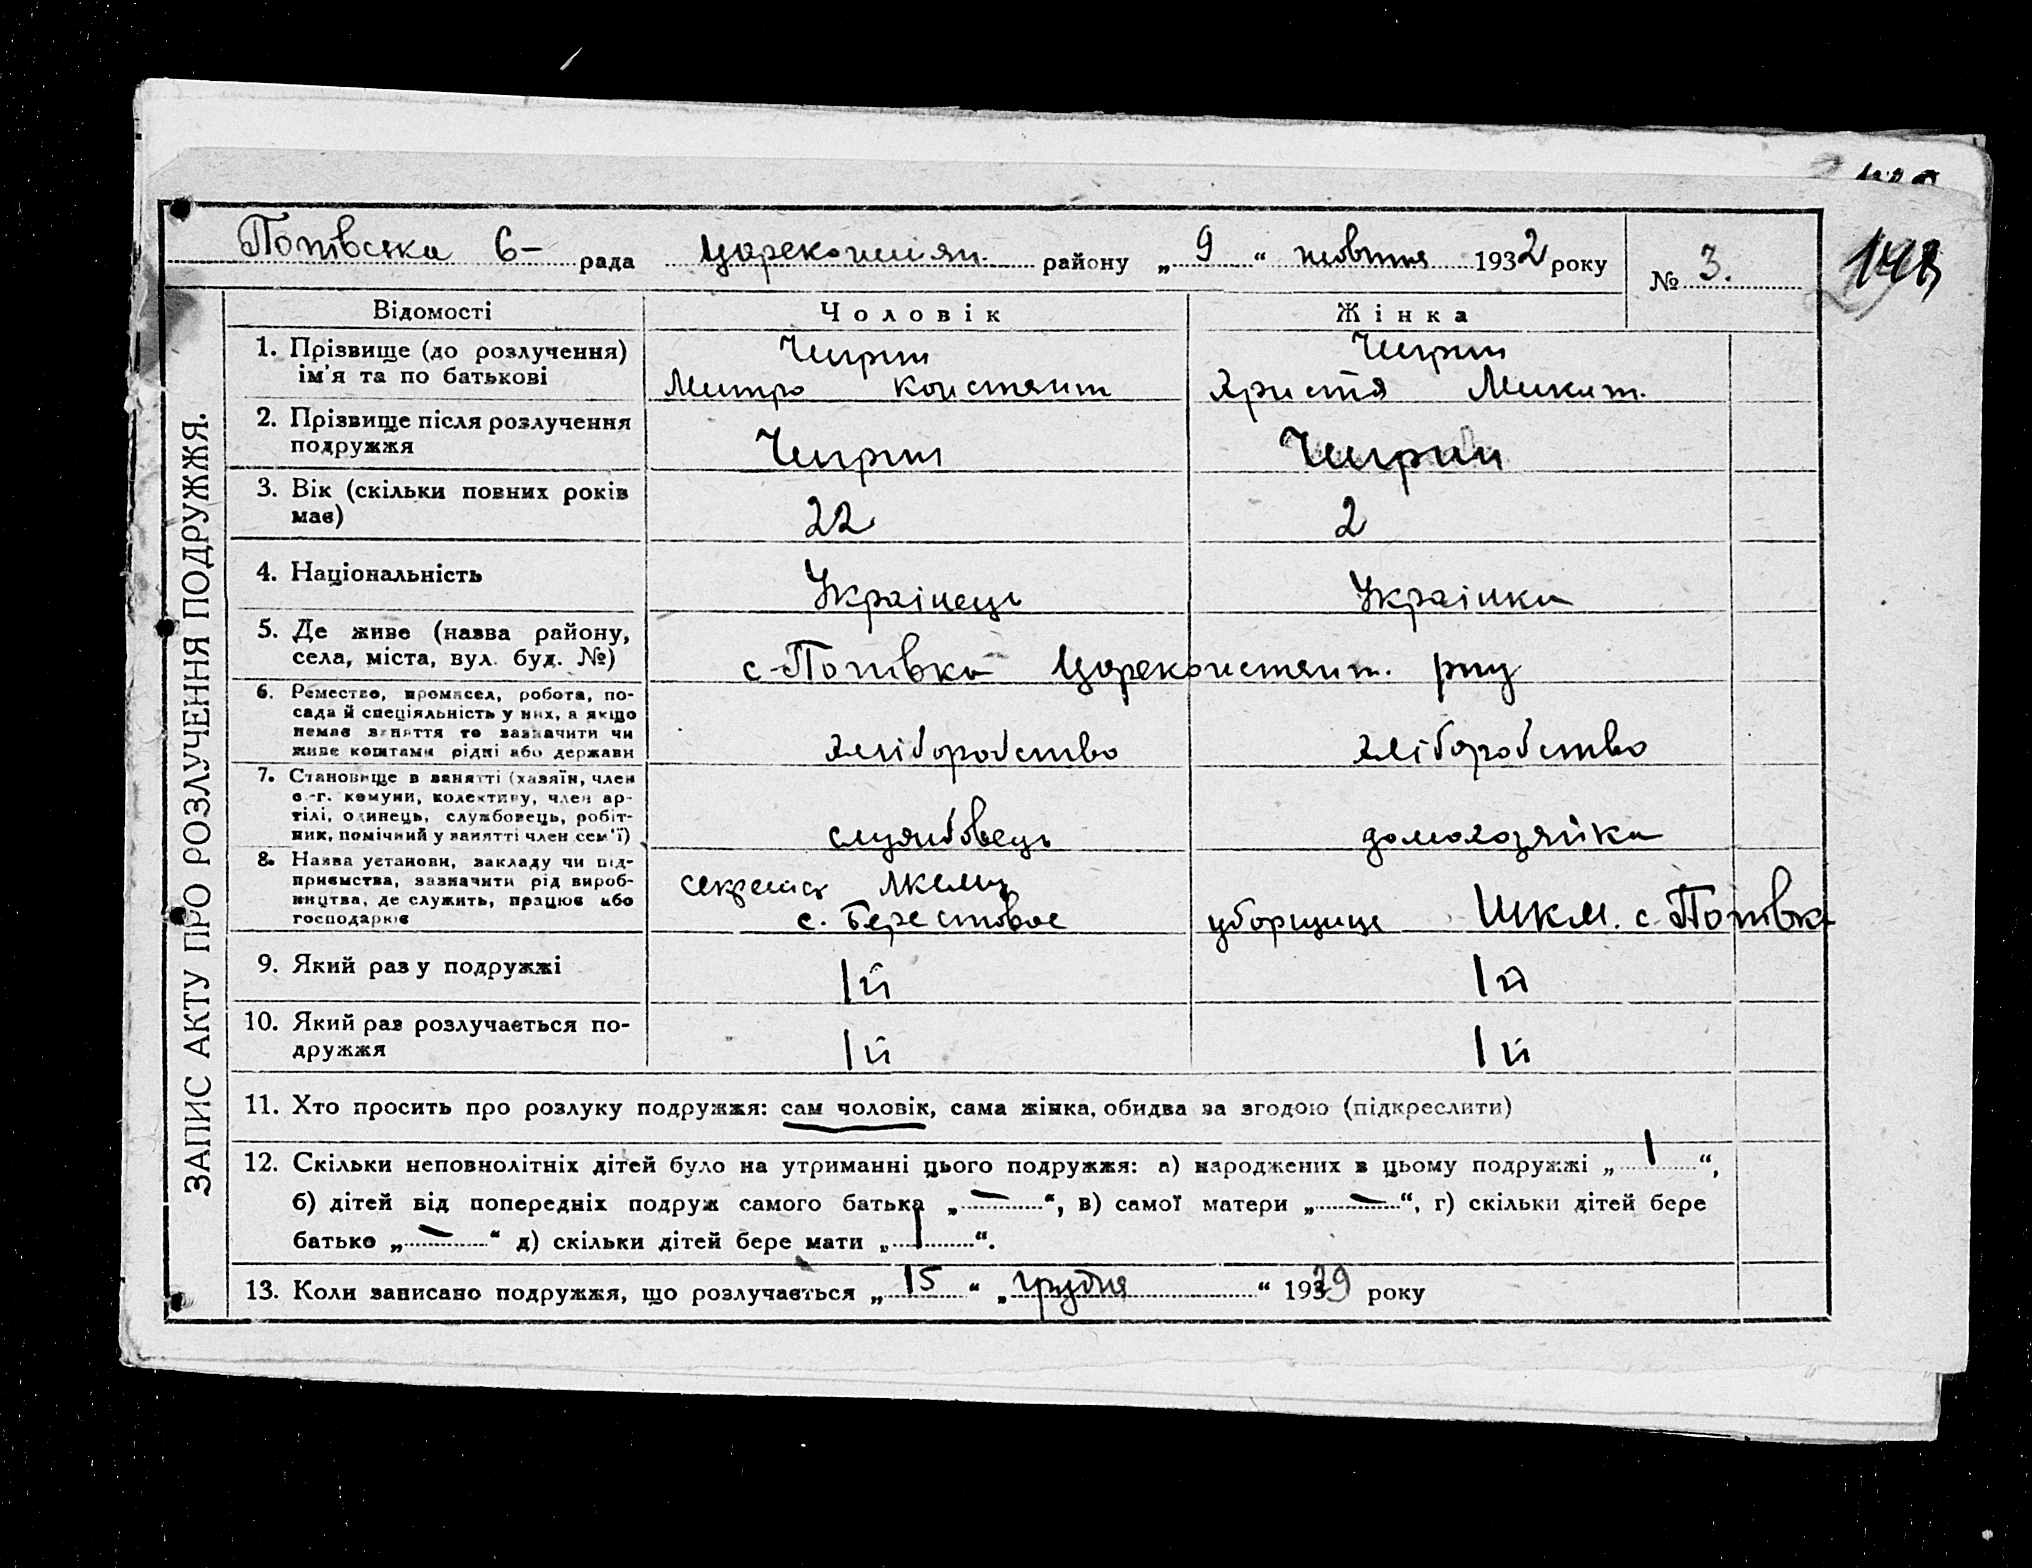 Попівська с- рада Царекостян. району „9“ жовтня 1932 року № 3.
148
ЗАПИС АКТУ ПРО РОЗЛУЧЕННЯ ПОДРУЖЖЯ.
Відомості Чоловік Жінка
1. Прізвище (до розлучення) Чирип Чирип
ім'я та по батькові Митро Констянт Христя Микит.
2. Прізвище після розлучення Чирип Чирип
подружжя
3. Вік (скільки повних років 22 2
має)
4. Національність Українець Українка
5. Де живе (назва району,
села, міста, вул. буд. №) с-Попівка Цареконстянт. рну
6. Ремество, промисел, робота, по-
сада й спеціяльність у них, а якщо
немає заняття то зазначити чи
живе коштами рідні або держави хліборобство хліборобство
7. Становище в занятті (хазяїн, член
с.-г. комуни, колективу, член ар-
тілі, одинець, службовець, робіт-
ник, помічний у занятті член сем'ї) службовець домохозяйка
8. Назва установи, закладу чи під-
приємства, зазначити рід вироб-
ництва, де служить, працює або
господарює с. Берестовое уборщице ШКМ. с-Попівка
9. Який раз у подружжі 1й 1й
10. Який раз розлучається по-
дружжя 1й 1й
11. Хто просить про розлуку подружжя: сам чоловік, сама жінка, обидва за згодою (підкреслити)
12. Скільки неповнолітніх дітей було на утриманні цього подружжя: а) народжених в цьому подружжі „1“,
б) дітей від попередніх подруж самого батька „—“, в) самої матери „—“, г) скільки дітей бере
батько „—“ д) скільки дітей бере мати „1“.
13. Коли записано подружжя, що розлучається „15“ „грудня“ 1929 року